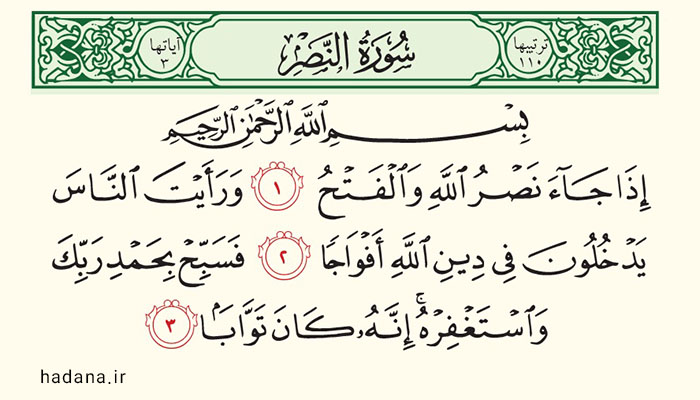 ترتيبها ١١٠ سُورَةُ النَّصْرِ آياتها ٣
بِسْمِ ٱللَّهِ ٱلرَّحْمَٰنِ ٱلرَّحِيمِ
إِذَا جَآءَ نَصْرُ ٱللَّهِ وَٱلْفَتْحُ ١ وَرَأَيْتَ ٱلنَّاسَ
يَدْخُلُونَ فِى دِينِ ٱللَّهِ أَفْوَاجًا ٢ فَسَبِّحْ بِحَمْدِ رَبِّكَ
وَٱسْتَغْفِرْهُ ۚ إِنَّهُۥ كَانَ تَوَّابًۢا ٣
hadana.ir